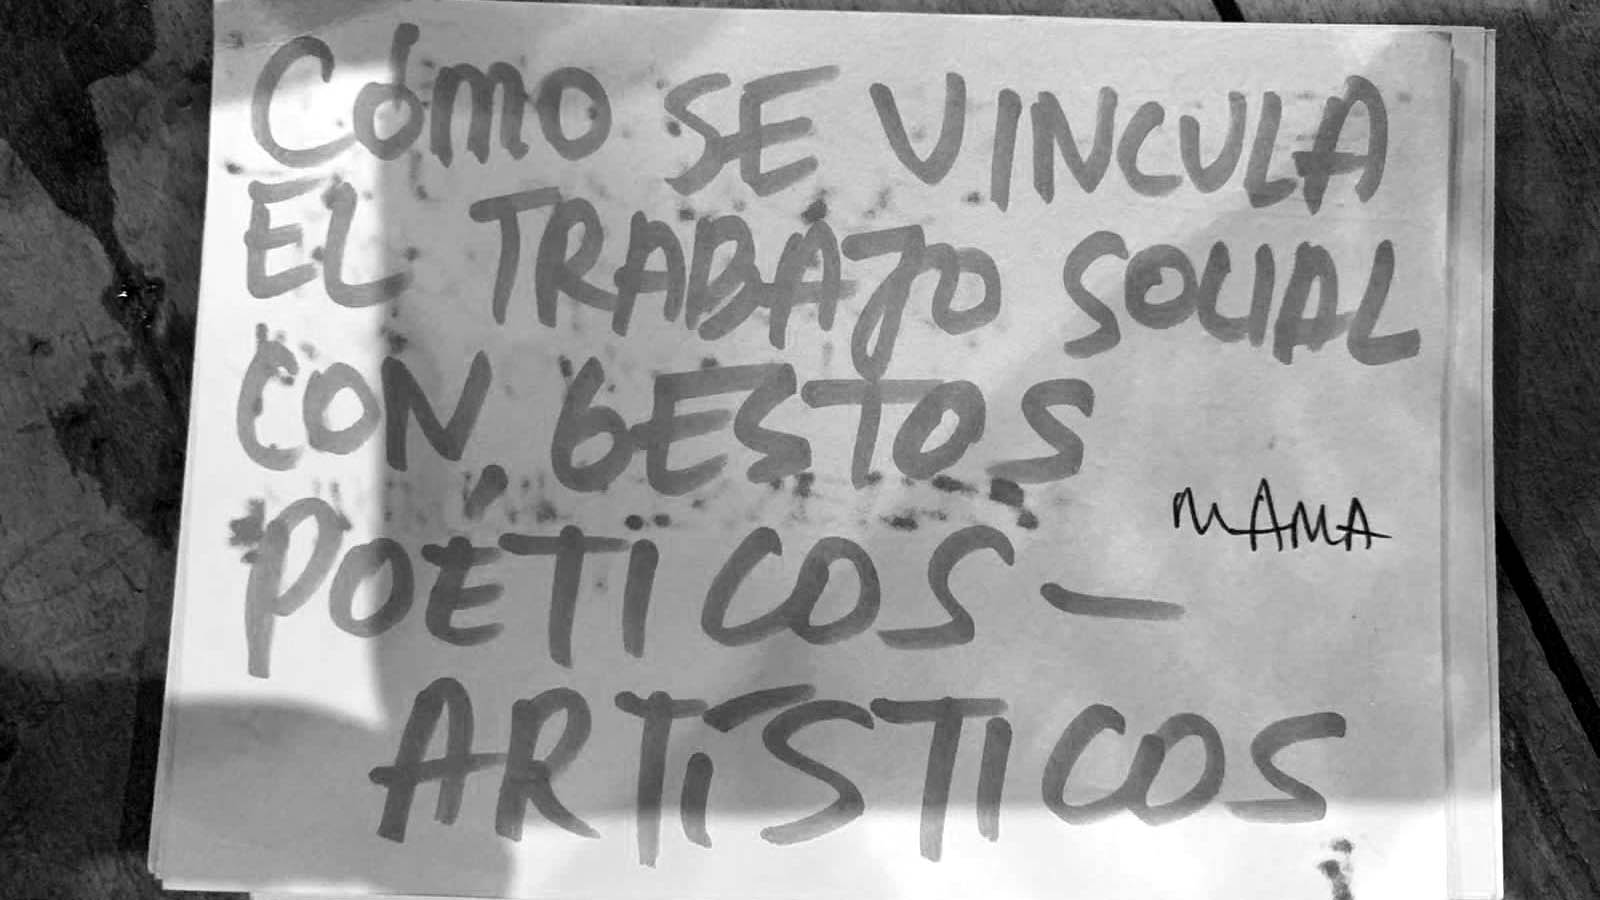 CÓMO SE VINCULA
EL TRABAJO SOCIAL
CON GESTOS
POÉTICOS -
MAMA
ARTÍSTICOS